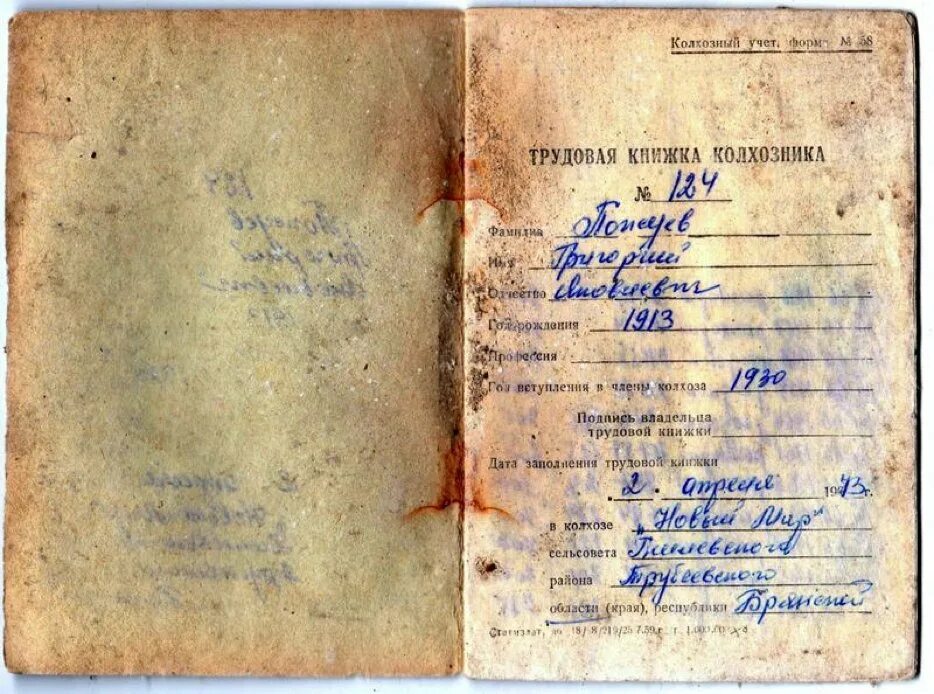 Колхозный учет, форм № 58
ТРУДОВАЯ КНИЖКА КОЛХОЗНИКА
№ 124
Фамилия
Имя Григорий
Отчество Яковлевич
Год рождения 1913
Профессия
Год вступления в члены колхоза 1930
Подпись владельца
трудовой книжки
Дата заполнения трудовой книжки
2 апреля 1973г.
в колхозе „Новый Мир"
сельсовета
района Трубчевского
области (края), республики Брянской
Статиздат,